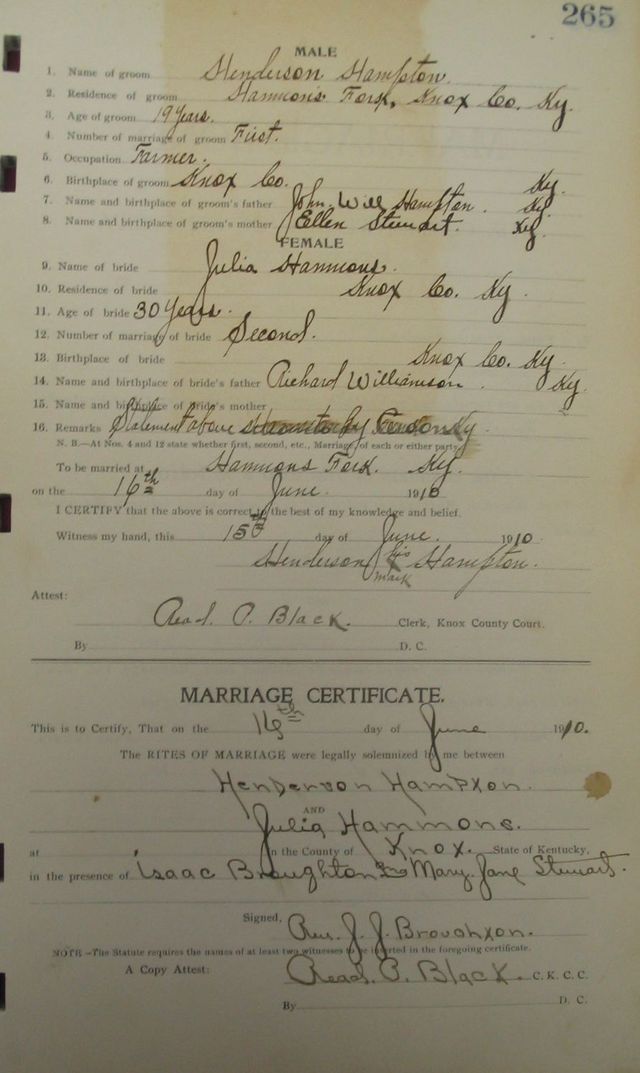 265
MALE
1. Name of groom Henderson Hampton.
2. Residence of groom Hammons Fork, Knox Co. Ky.
3. Age of groom 19 Years.
4. Number of marriage of groom First.
5. Occupation Farmer.
6. Birthplace of groom Knox Co. Ky.
7. Name and birthplace of groom's father John Will Hampton. Ky
8. Name and birthplace of groom's mother Ellen Stewart. Ky.
FEMALE
9. Name of bride Julia Hammons.
10. Residence of bride Knox Co. Ky.
11. Age of bride 30 Years.
12. Number of marriage of bride Second.
13. Birthplace of bride Knox Co. Ky.
14. Name and birthplace of bride's father Richard Williamson. Ky.
15. Name and birthplace of bride's mother
16. Remarks Statement above by
N. B.—At Nos. 4 and 12 state whether first, second, etc., Marriage of each or either party.
To be married at Hammons Fork. Ky.
on the 16th day of June. 1910
I CERTIFY that the above is correct to the best of my knowledge and belief.
Witness my hand, this 15th day of June. 1910
Henderson his Hampton.
mark
Attest:
Read. P. Black. Clerk, Knox County Court.
By D. C.
MARRIAGE CERTIFICATE.
This is to Certify, That on the 16th day of June 1910.
The RITES OF MARRIAGE were legally solemnized by me between
Henderson Hampton.
AND
Julia Hammons.
at in the County of Knox. State of Kentucky,
in the presence of Isaac Broughton & Mary Jane Stewart.
Signed, Rev. J. J. Broughton.
NOTE—The Statute requires the names of at least two witnesses to be inserted in the foregoing certificate.
A Copy Attest: Read. P. Black. C. K. C. C.
By D. C.